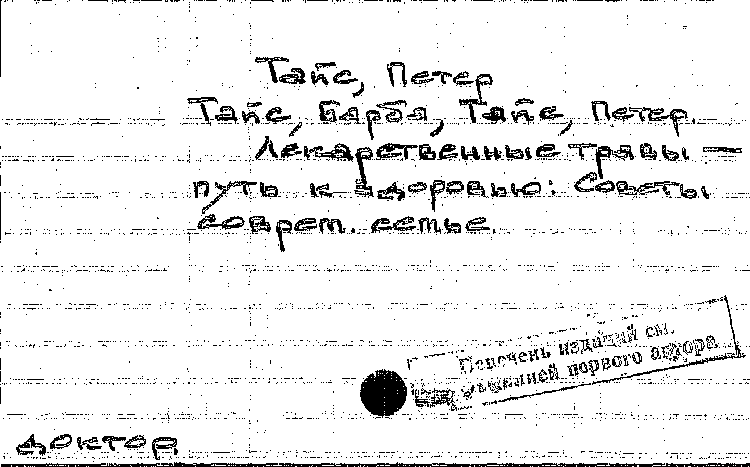 Тайс, Петер
Тайс, Барба, Тайс, Петер.
Лекарственные травы —
путь к здоровью: Советы
соврем. семье.
Перечень изданий см.
первого автора
доктор